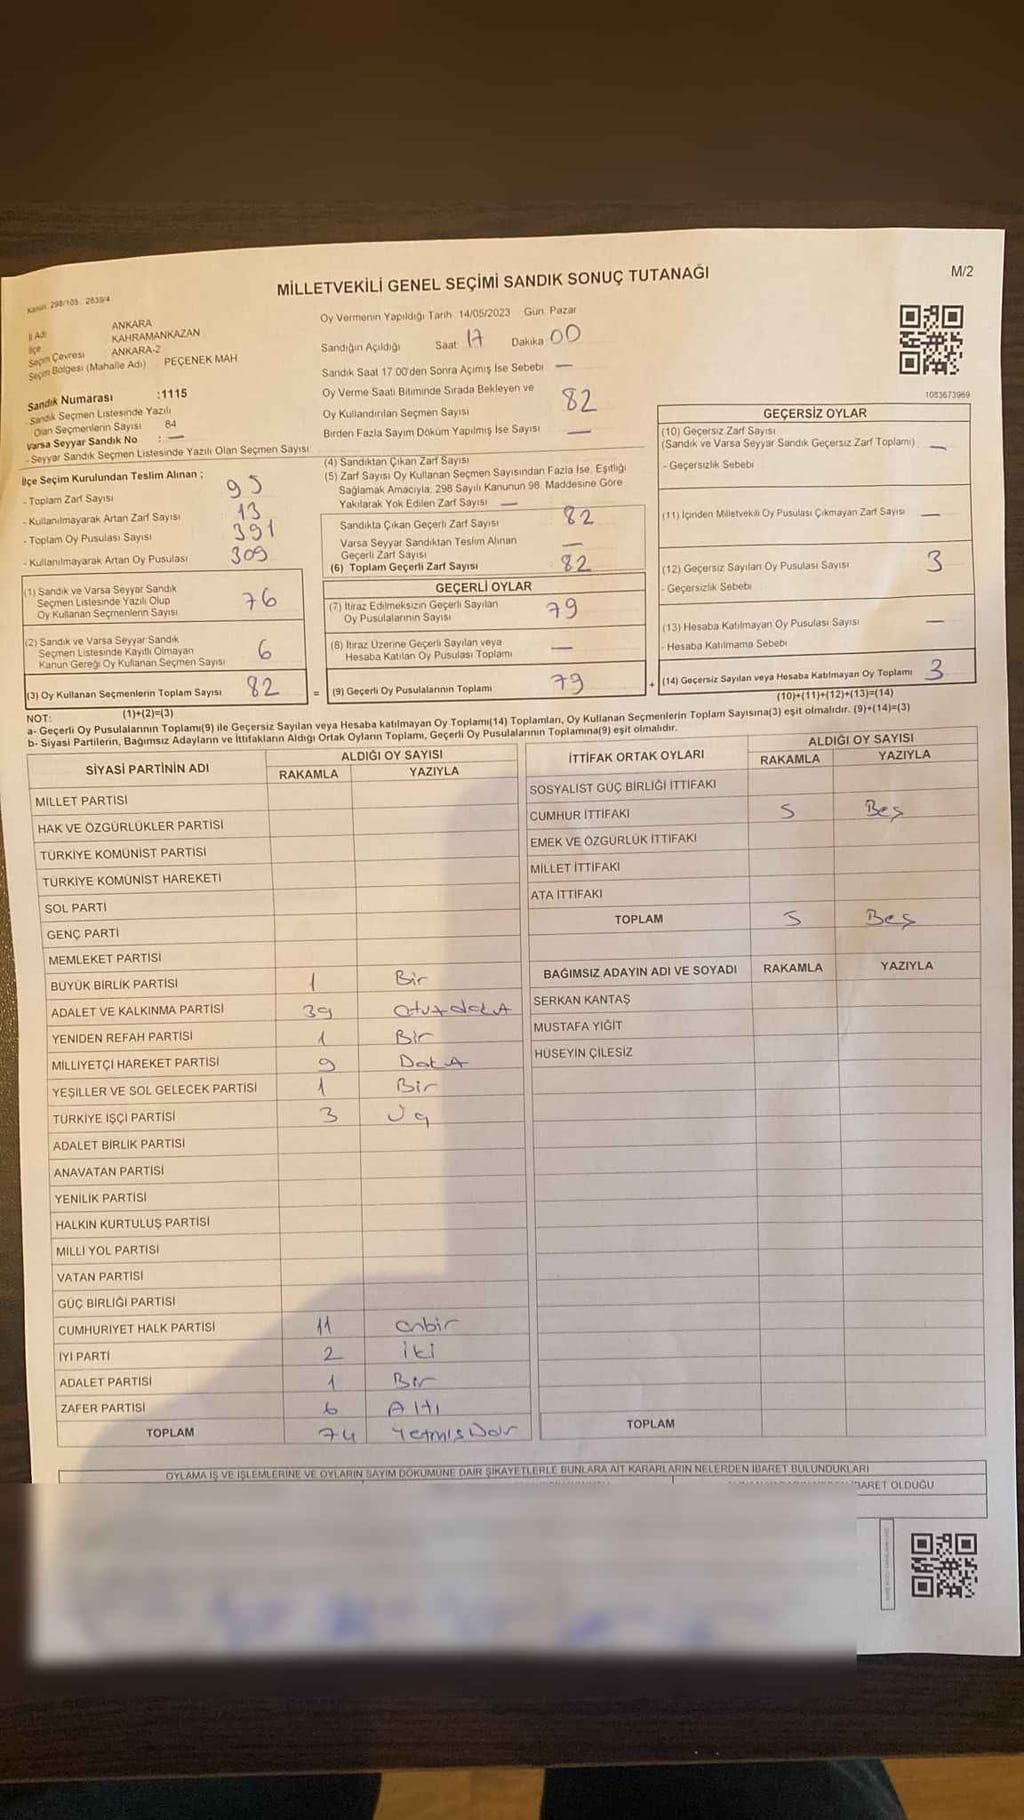 MİLLETVEKİLİ GENEL SEÇİMİ SANDIK SONUÇ TUTANAĞI
M/2
Kanun: 298/105, 2839/4
İl Adı ANKARA
İlçe KAHRAMANKAZAN
Seçim Çevresi ANKARA-2
Seçim Bölgesi (Mahalle Adı) PEÇENEK MAH
Sandık Numarası :1115
- Sandık Seçmen Listesinde Yazılı
Olan Seçmenlerin Sayısı 84
Varsa Seyyar Sandık No : —
- Seyyar Sandık Seçmen Listesinde Yazılı Olan Seçmen Sayısı
İlçe Seçim Kurulundan Teslim Alınan ;
- Toplam Zarf Sayısı 95
- Kullanılmayarak Artan Zarf Sayısı 13
- Toplam Oy Pusulası Sayısı 391
- Kullanılmayarak Artan Oy Pusulası 309
(1) Sandık ve Varsa Seyyar Sandık
Seçmen Listesinde Yazılı Olup
Oy Kullanan Seçmenlerin Sayısı 76
(2) Sandık ve Varsa Seyyar Sandık
Seçmen Listesinde Kayıtlı Olmayan
Kanun Gereği Oy Kullanan Seçmen Sayısı 6
(3) Oy Kullanan Seçmenlerin Toplam Sayısı 82
(1)+(2)=(3)
Oy Vermenin Yapıldığı Tarih 14/05/2023 Gün Pazar
Sandığın Açıldığı Saat 17 Dakika 00
Sandık Saat 17.00'den Sonra Açımış İse Sebebi —
Oy Verme Saati Bitiminde Sırada Bekleyen ve
Oy Kullandırılan Seçmen Sayısı 82
Birden Fazla Sayım Döküm Yapılmış İse Sayısı —
(4) Sandıktan Çıkan Zarf Sayısı
(5) Zarf Sayısı Oy Kullanan Seçmen Sayısından Fazla İse, Eşitliği
Sağlamak Amacıyla; 298 Sayılı Kanunun 98. Maddesine Göre
Yakılarak Yok Edilen Zarf Sayısı —
Sandıkta Çıkan Geçerli Zarf Sayısı 82
Varsa Seyyar Sandıktan Teslim Alınan
Geçerli Zarf Sayısı —
(6) Toplam Geçerli Zarf Sayısı 82
GEÇERLİ OYLAR
(7) İtiraz Edilmeksizin Geçerli Sayılan
Oy Pusulalarının Sayısı 79
(8) İtiraz Üzerine Geçerli Sayılan veya
Hesaba Katılan Oy Pusulası Toplamı —
= (9) Geçerli Oy Pusulalarının Toplamı 79
1083673969
GEÇERSİZ OYLAR
(10) Geçersiz Zarf Sayısı
(Sandık ve Varsa Seyyar Sandık Geçersiz Zarf Toplamı) —
- Geçersizlik Sebebi
(11) İçinden Milletvekili Oy Pusulası Çıkmayan Zarf Sayısı —
(12) Geçersiz Sayılan Oy Pusulası Sayısı 3
- Geçersizlik Sebebi
(13) Hesaba Katılmayan Oy Pusulası Sayısı —
- Hesaba Katılmama Sebebi
+ (14) Geçersiz Sayılan veya Hesaba Katılmayan Oy Toplamı 3
(10)+(11)+(12)+(13)=(14)
NOT:
a- Geçerli Oy Pusulalarının Toplamı(9) ile Geçersiz Sayılan veya Hesaba katılmayan Oy Toplamı(14) Toplamları, Oy Kullanan Seçmenlerin Toplam Sayısına(3) eşit olmalıdır. (9)+(14)=(3)
b- Siyasi Partilerin, Bağımsız Adayların ve İttifakların Aldığı Ortak Oyların Toplamı, Geçerli Oy Pusulalarının Toplamına(9) eşit olmalıdır.
SİYASİ PARTİNİN ADI ALDIĞI OY SAYISI
RAKAMLA YAZIYLA
MİLLET PARTİSİ
HAK VE ÖZGÜRLÜKLER PARTİSİ
TÜRKİYE KOMÜNİST PARTİSİ
TÜRKİYE KOMÜNİST HAREKETİ
SOL PARTİ
GENÇ PARTİ
MEMLEKET PARTİSİ
BÜYÜK BİRLİK PARTİSİ 1 Bir
ADALET VE KALKINMA PARTİSİ 39
YENİDEN REFAH PARTİSİ 1 Bir
MİLLİYETÇİ HAREKET PARTİSİ 9
YEŞİLLER VE SOL GELECEK PARTİSİ 1 Bir
TÜRKİYE İŞÇİ PARTİSİ 3 Üç
ADALET BİRLİK PARTİSİ
ANAVATAN PARTİSİ
YENİLİK PARTİSİ
HALKIN KURTULUŞ PARTİSİ
MİLLİ YOL PARTİSİ
VATAN PARTİSİ
GÜÇ BİRLİĞİ PARTİSİ
CUMHURİYET HALK PARTİSİ 11 onbir
İYİ PARTİ 2 iki
ADALET PARTİSİ 1 Bir
ZAFER PARTİSİ 6 Altı
TOPLAM 74
İTTİFAK ORTAK OYLARI ALDIĞI OY SAYISI
RAKAMLA YAZIYLA
SOSYALİST GÜÇ BİRLİĞİ İTTİFAKI
CUMHUR İTTİFAKI 5 Beş
EMEK VE ÖZGÜRLÜK İTTİFAKI
MİLLET İTTİFAKI
ATA İTTİFAKI
TOPLAM 5 Beş
BAĞIMSIZ ADAYIN ADI VE SOYADI RAKAMLA YAZIYLA
SERKAN KANTAŞ
MUSTAFA YİĞİT
HÜSEYİN ÇİLESİZ
TOPLAM
OYLAMA İŞ VE İŞLEMLERİNE VE OYLARIN SAYIM DÖKÜMÜNE DAİR ŞİKAYETLERLE BUNLARA AİT KARARLARIN NELERDEN İBARET BULUNDUKLARI
BARET OLDUĞU